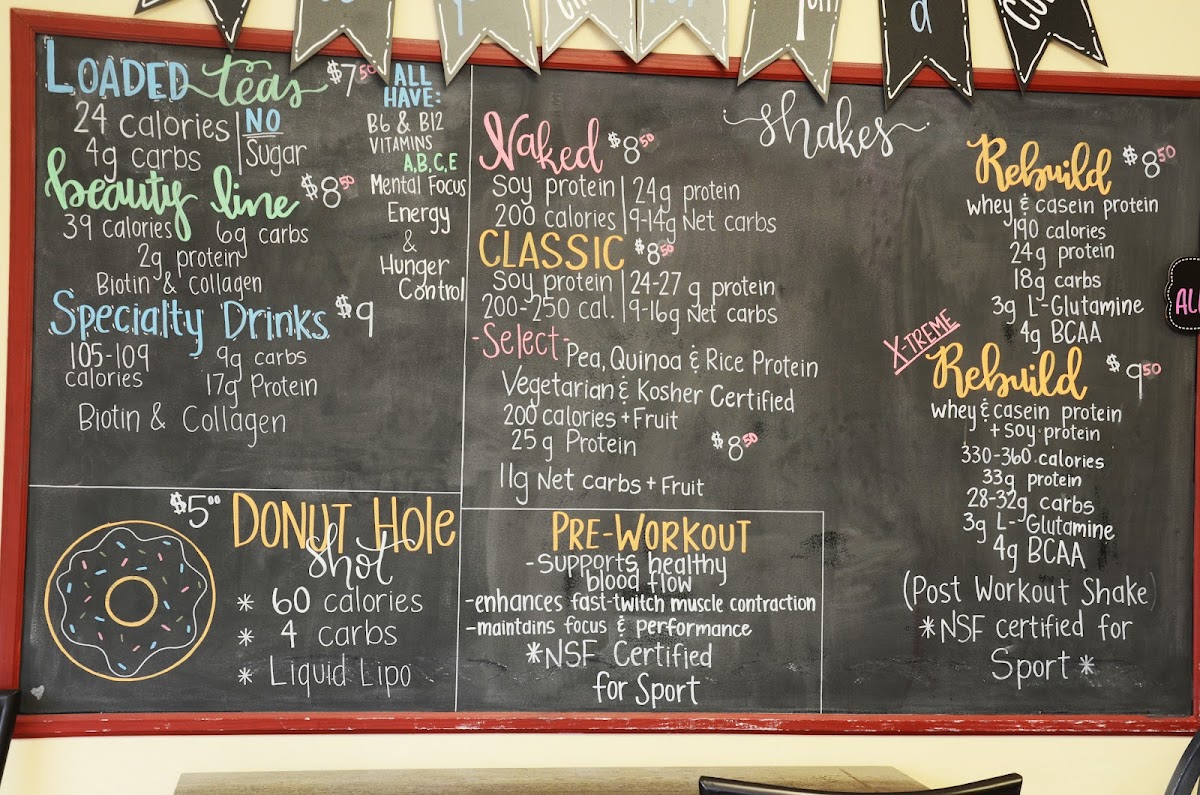 LOADED teas $7.50
24 calories | NO
4g carbs | Sugar
beauty line $8.50
39 calories 6g carbs
2g protein
Biotin & Collagen
Specialty Drinks $9
105-109 calories 9g carbs
17g Protein
Biotin & Collagen
ALL HAVE:
B6 & B12
VITAMINS
A,B,C,E
Mental Focus
Energy
&
Hunger
Control
$5.00 DONUT Hole
shot
* 60 calories
* 4 carbs
* Liquid Lipo
shakes
Naked $8.50
Soy protein | 24g protein
200 calories | 9-14g Net carbs
CLASSIC $8.50
Soy protein | 24-27 g protein
200-250 cal. | 9-16g Net carbs
-Select- Pea, Quinoa & Rice Protein
Vegetarian & Kosher Certified
200 calories + Fruit
25g Protein $8.50
11g Net carbs + Fruit
PRE-WORKOUT
-supports healthy
blood flow
-enhances fast-twitch muscle contraction
-maintains focus & performance
*NSF Certified
for Sport
Rebuild $8.50
whey & casein protein
190 calories
24g protein
18g carbs
3g L-Glutamine
4g BCAA
X-TREME
Rebuild $9.50
whey & casein protein
+ soy protein
330-360 calories
33g protein
28-32g carbs
3g L-Glutamine
4g BCAA
(Post Workout Shake)
*NSF certified for
Sport*